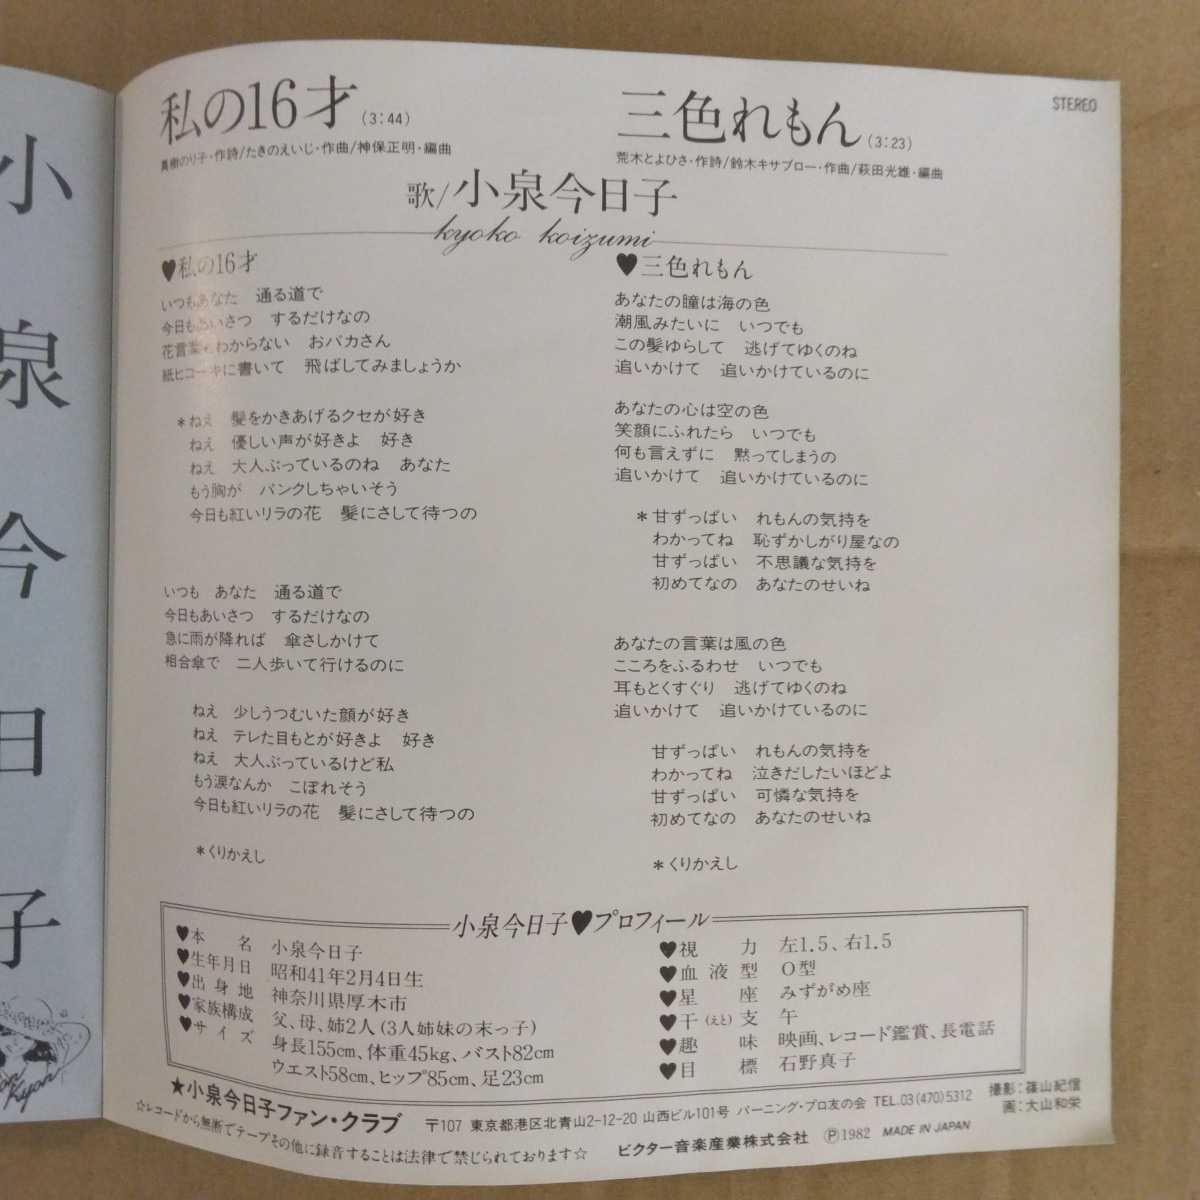 小泉今日子
私の16才 (3:44)
真樹のり子・作詩/たきのえいじ・作曲/神保正明・編曲
三色れもん (3:23)
荒木とよひさ・作詩/鈴木キサブロー・作曲/萩田光雄・編曲
STEREO
歌/小泉今日子
kyoko koizumi
♥私の16才
いつもあなた 通る道で
今日もあいさつ するだけなの
花言葉もわからない おバカさん
紙ヒコーキに書いて 飛ばしてみましょうか
*ねえ 髪をかきあげるクセが好き
ねえ 優しい声が好きよ 好き
ねえ 大人ぶっているのね あなた
もう胸が パンクしちゃいそう
今日も紅いリラの花 髪にさして待つの
いつも あなた 通る道で
今日もあいさつ するだけなの
急に雨が降れば 傘さしかけて
相合傘で 二人歩いて行けるのに
ねえ 少しうつむいた顔が好き
ねえ テレた目もとが好きよ 好き
ねえ 大人ぶっているけど私
もう涙なんか こぼれそう
今日も紅いリラの花 髪にさして待つの
*くりかえし
♥三色れもん
あなたの瞳は海の色
潮風みたいに いつでも
この髪ゆらして 逃げてゆくのね
追いかけて 追いかけているのに
あなたの心は空の色
笑顔にふれたら いつでも
何も言えずに 黙ってしまうの
追いかけて 追いかけているのに
*甘ずっぱい れもんの気持を
わかってね 恥ずかしがり屋なの
甘ずっぱい 不思議な気持を
初めてなの あなたのせいね
あなたの言葉は風の色
こころをふるわせ いつでも
耳もとくすぐり 逃げてゆくのね
追いかけて 追いかけているのに
甘ずっぱい れもんの気持を
わかってね 泣きだしたいほどよ
甘ずっぱい 可憐な気持を
初めてなの あなたのせいね
*くりかえし
小泉今日子♥プロフィール
♥本名 小泉今日子
♥生年月日 昭和41年2月4日生
♥出身地 神奈川県厚木市
♥家族構成 父、母、姉2人(3人姉妹の末っ子)
♥サイズ 身長155cm、体重45kg、バスト82cm
ウエスト58cm、ヒップ85cm、足23cm
♥視力 左1.5、右1.5
♥血液型 O型
♥星座 みずがめ座
♥干(えと)支 午
♥趣味 映画、レコード鑑賞、長電話
♥目標 石野真子
★小泉今日子ファン・クラブ 〒107 東京都港区北青山2-12-20 山西ビル101号 バーニング・プロ友の会 TEL.03(470)5312
撮影:篠山紀信
画:大山和栄
☆レコードから無断でテープその他に録音することは法律で禁じられております☆ ビクター音楽産業株式会社 Ⓟ1982 MADE IN JAPAN
Kyon